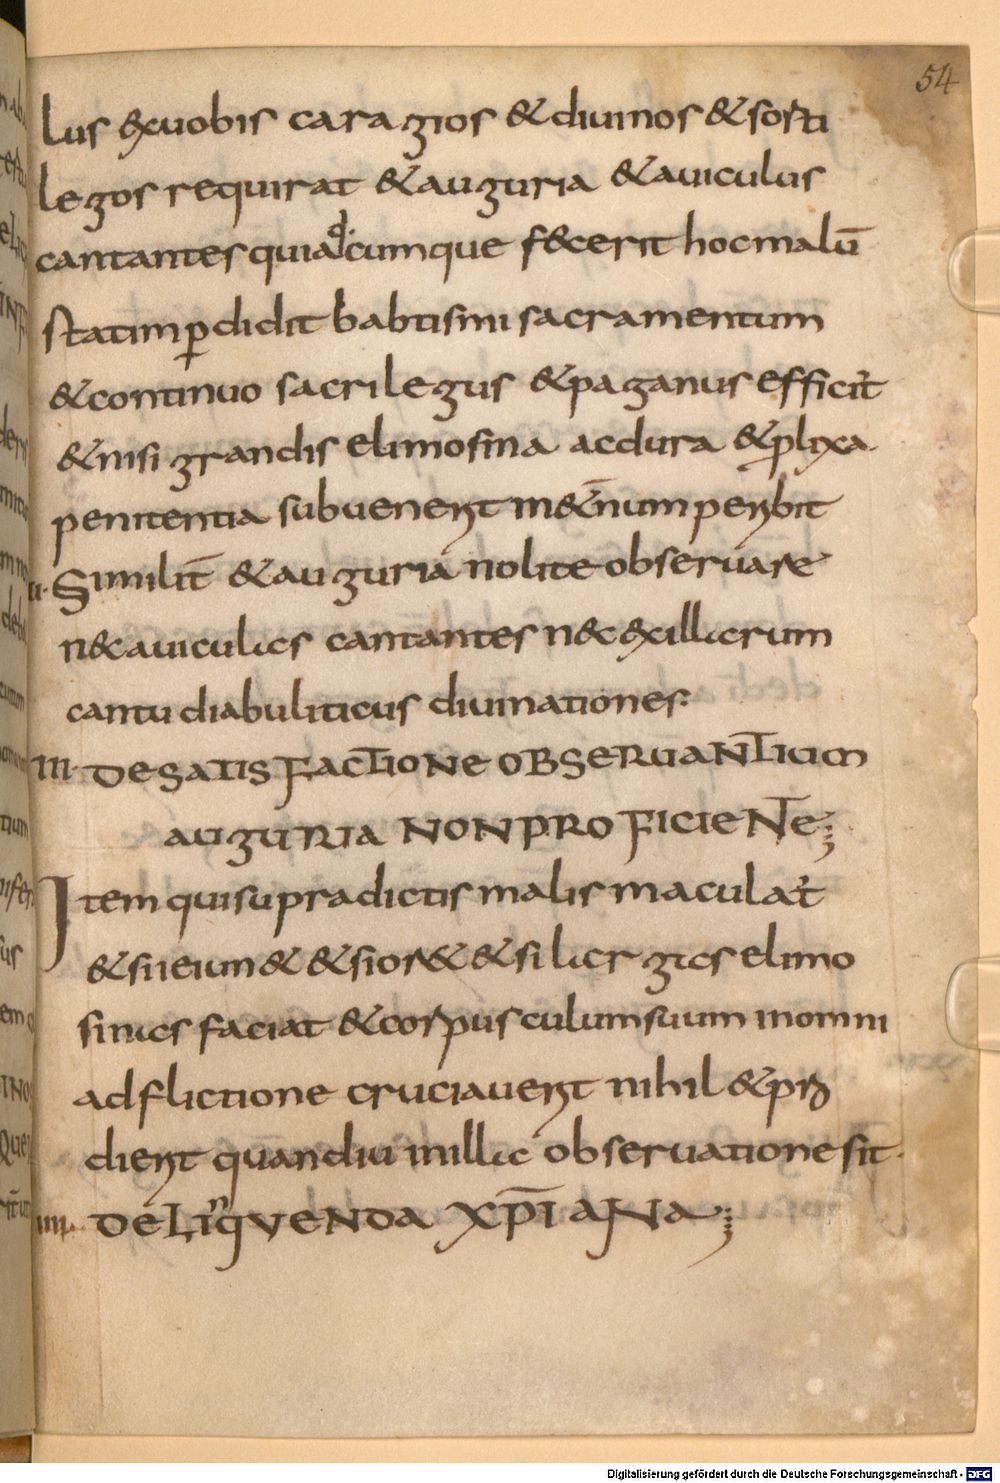 54
lus exuobis caragios & diuinos & sorti
legos requirat & auguria & auiculas
cantantes quia qdcumque fecerit hoc malū
statim perdidit babtismi sacramentum
& continuo sacrilegus & paganus efficit᷑
& nisi grandis elimosina ac dura & plixa
penitentia subuenerit in &̄num peribit
II. Similit̄ & auguria nolite obseruare
nec auiculas cantantes nec ex illarum
cantu diabuliticas diuinationes.
III. DE SATISFACTIONE OBSERUANTIUM
AUGURIA NON PROFICIENTE;
Item qui supradictis malis maculat᷑
& si ieiun& & si or& & si largas elimo
sinas faciat & corpusculum suum in omni
adflictione cruciauerit nihil & ꝓ
dierit quandiu in illa obseruatione sit.
IIII. DE LINQUENDA XP̄IANA;
Digitalisierung gefördert durch die Deutsche Forschungsgemeinschaft - DFG